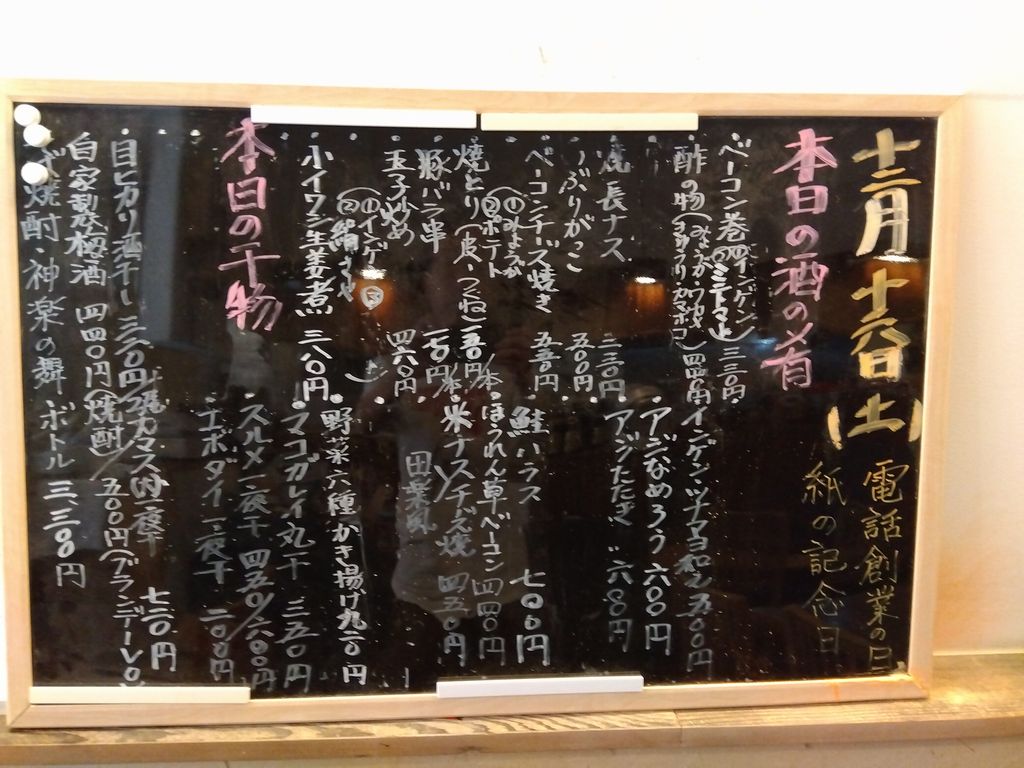 十二月十六日(土)
電話創業の日
紙の記念日
本日の酒の肴
ベーコン巻
三三〇円
酢の物(みょうが・ワカメ
四四〇円
インゲンツナマヨ和え 五〇〇円
アジなめろう 六〇〇円
焼長ナス
三三〇円
アジたたき 六〇〇円
いぶりがっこ
五〇〇円
ベーコンチーズ焼き
①みょうが
②ポテト
五五〇円
鮭ハラス 七〇〇円
焼とり(皮・つくね)
一五〇円/本
ほうれん草ベーコン 四四〇円
豚バラ串
米ナスチーズ焼 四五〇円
田楽風
玉子炒め
①インゲン
四六〇円
小イワシ生姜煮 三八〇円
野菜六種かき揚げ 九二〇円
本日の干物
マコガレイ丸干 三五〇円
スルメ一夜干 四五〇/六〇〇円
エボダイ一夜干
目ヒカリ酒干し 三二〇円
カマス肉一夜干
七二〇円
自家製梅酒 四四〇円(焼酎)/五〇〇円(ブランデーV.O)
焼酎 神楽の舞 ボトル 三、三〇〇円